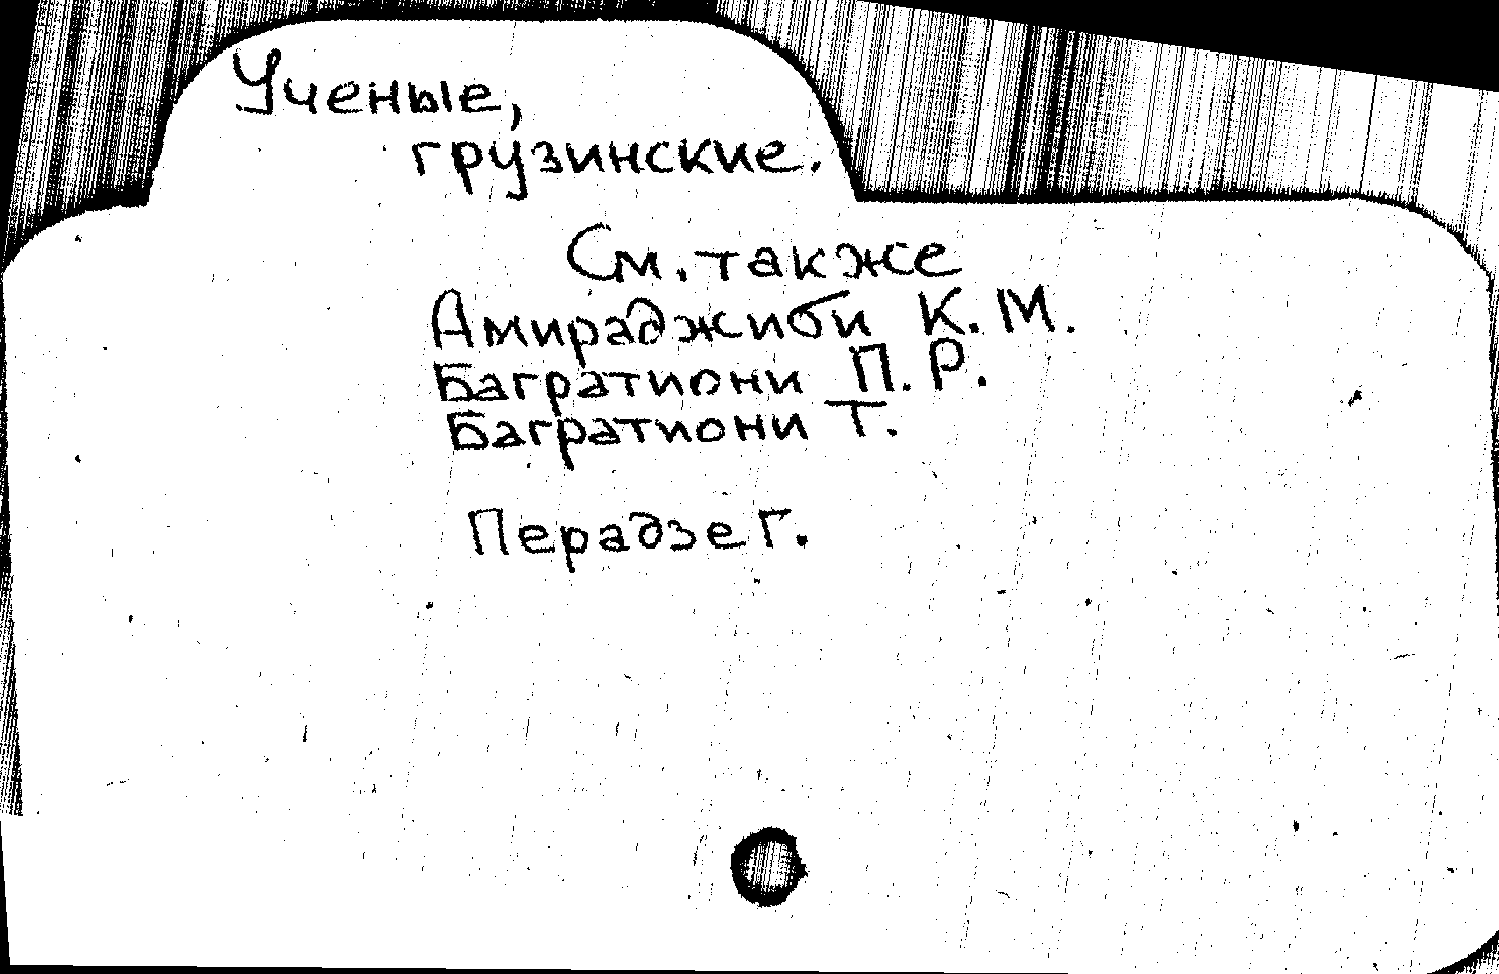 Ученые,
грузинские.
См. также
Амираджиби К. М.
Багратиони П. Р.
Багратиони Т.
Перадзе Г.